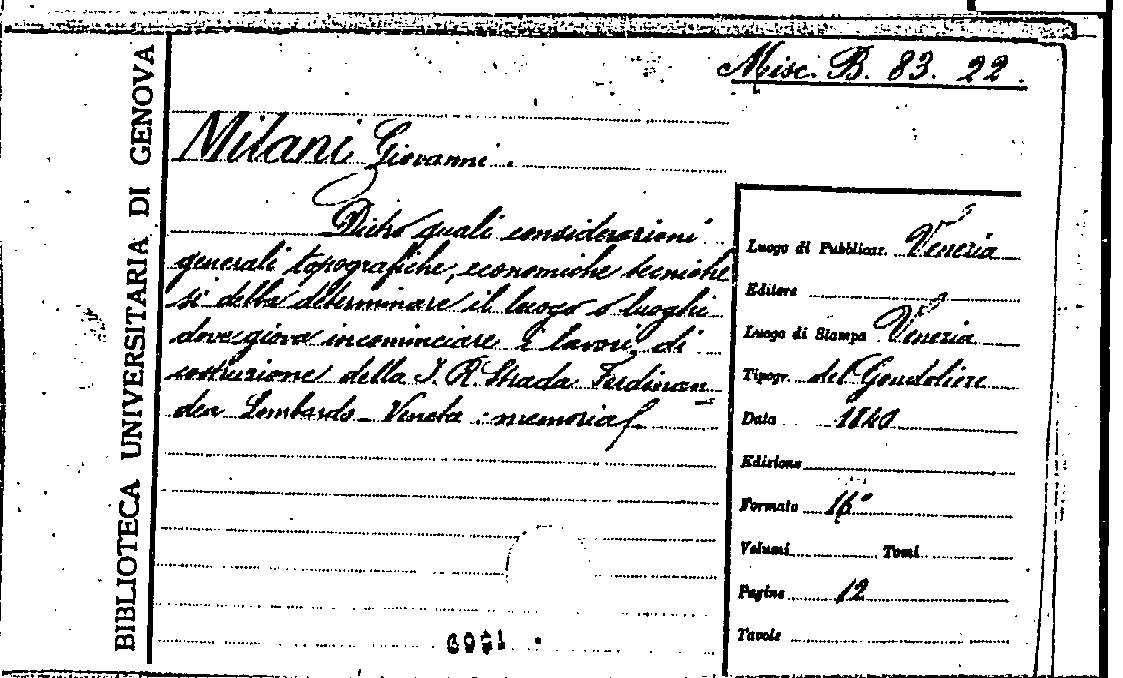 Misc. B. 83. 22.
BIBLIOTECA UNIVERSITARIA DI GENOVA
Milani Giovanni.
Dietro quali considerazioni
generali topografiche, economiche tecniche
si debba determinare il luogo o luoghi
dove giova incominciare i lavori di
costruzione della I. R. Strada Ferdinan
dea Lombardo-Veneta: memoria
Luogo di Pubblicaz. Venezia
Editore
Luogo di Stampa Venezia
Tipogr. del Gondoliere
Data 1840
Edizione
Formato 16°
Volumi Tomi
Pagine 12
Tavole